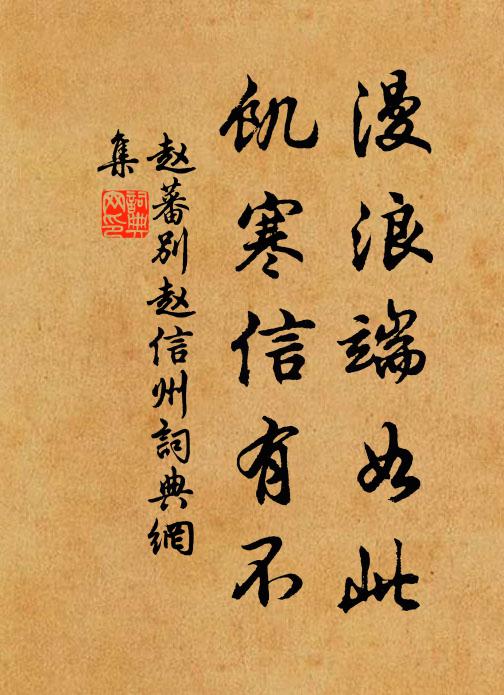 漫浪端如此
飢寒信有不
赵蕃别赵信州詞典網
集
詞典网印